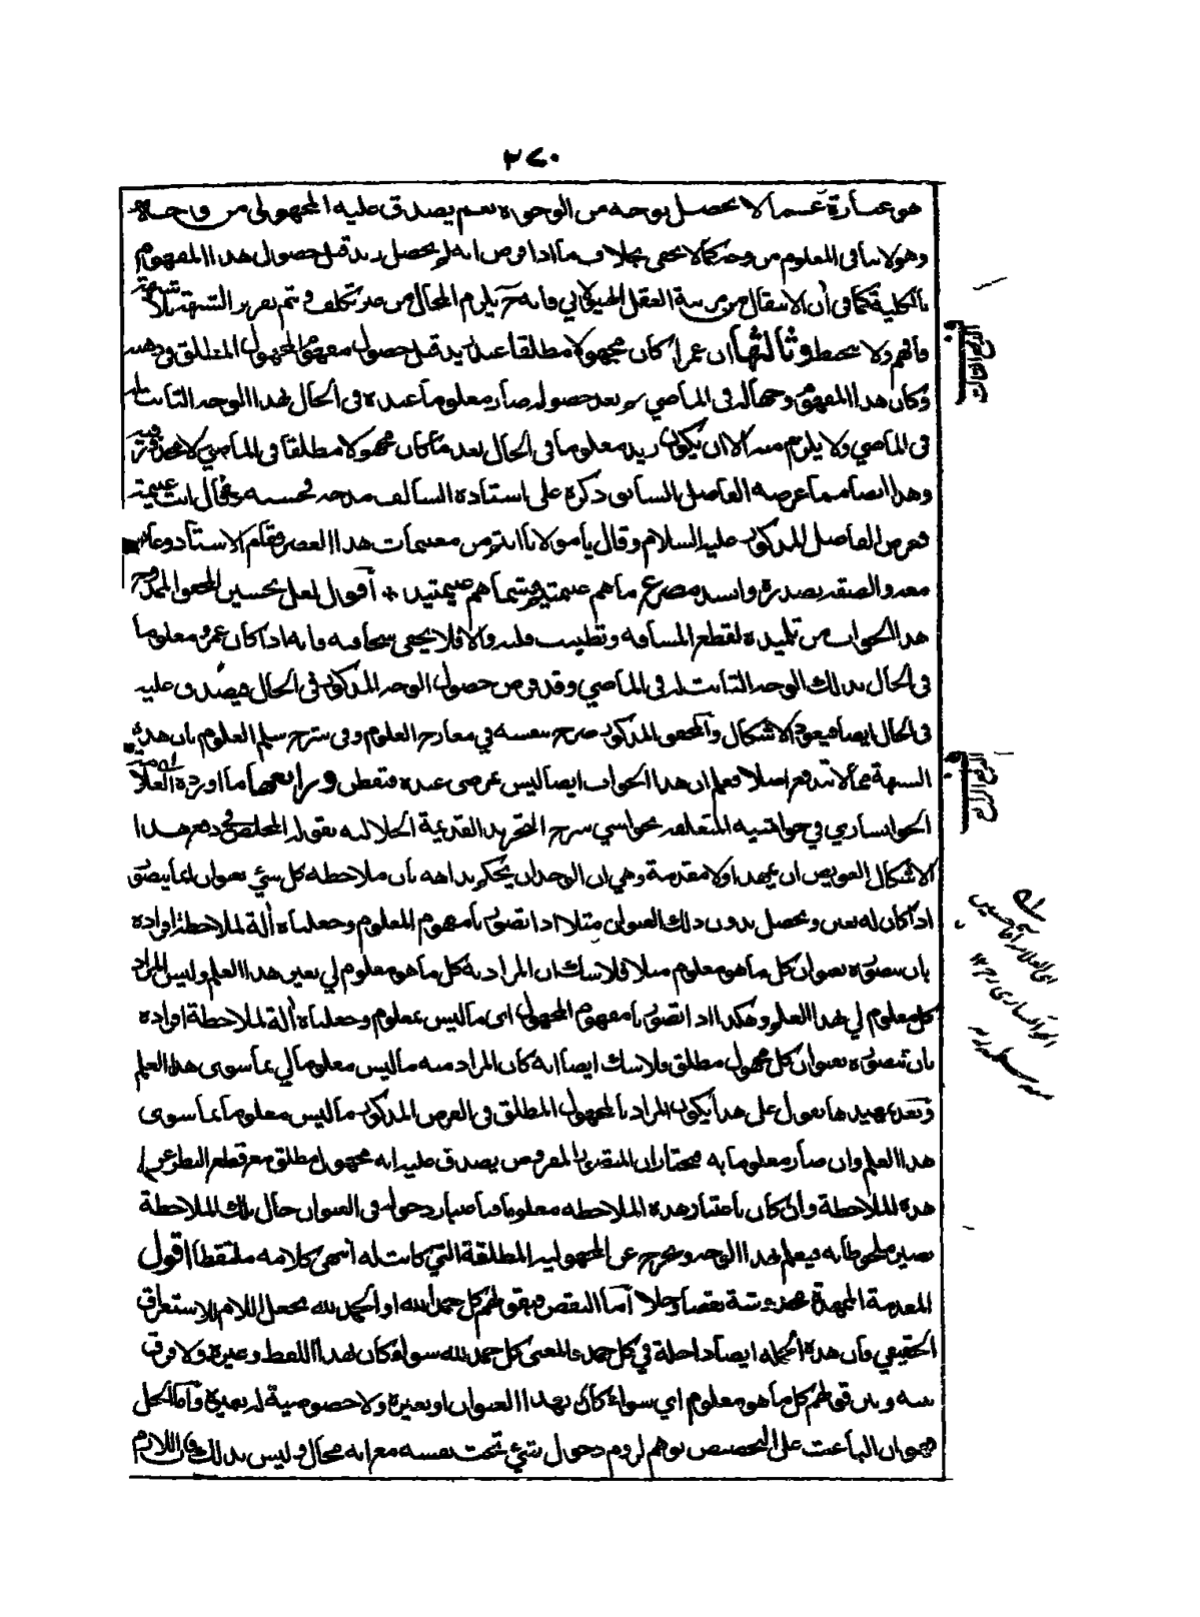 ٢٧٠
هو عبارة عما لا يحصل بوجه من الوجوه نعم يصدق عليه المجهول من
وهو لا ينافي المعلوم من وجه كما لا يخفى بخلاف ما اذا فرض انه لم يحصل زيد قبل حصول هذا المفهوم
بالكلية كما في أن الانتقال من مرتبة العقل الهيولاني فانه ح يلزم المحال من غير تكلف وتم تقرير الشبهة بلا شبهة
فافهم ولا تخبط وثالثها ان عمرا كان مجهولا مطلقا عند زيد قبل حصول مفهوم المجهول المطلق في ذهنه
وكان هذا المفهوم وجها له في الماضي وبعد حصوله صار معلوما عنده في الحال بهذا الوجه الثابت له
في الماضي ولا يلزم منه الا ان يكون زيد معلوما في الحال بعد ما كان مجهولا مطلقا في الماضي لا محذور فيه
وهذا ايضا مما عرضه الفاضل السابق ذكره على استاذه السالف مدحه فحسنه وقال انت غنيمة
فعرض الفاضل المذكور عليه السلام وقال يا مولانا انتم من مغتنمات هذا العصر فقام الاستاذ وعانقه
معه والصقه بصدره وانشد مصرع ما هم غنيمتيم شما هم غنيمتيد * أقول لعل تحسين المحقق الممدوح
هذا الجواب من تلميذه لقطع المسافة وتطييب قلبه والا فلا يخفى سخافته فانه اذا كان عمرو معلوما
في الحال بذلك الوجه الثابت له في الماضي وقد فرض حصول الوجه المذكور في الحال فيصدق عليه
في الحال ايضا فيعود الاشكال والمحقق المذكور صرح بنفسه في معارج العلوم وفي شرح سلم العلوم بان هذه
الشبهة مما لا تندفع اصلا فعلم ان هذا الجواب ايضا ليس بمرضي عنده فتفطن ورابعها ما اورده العلامة
الخوانساري في حواشيه المتعلقة بحواشي شرح التجريد القديمة الجلالية بقوله المخلص في دفع هذا
الاشكال العويص ان يمهد اولا مقدمة وهي ان الوجدان يحكم بداهة بان ملاحظة كل شيء بعنوان انما يتصور
اذا كان له تعين وتحصل بدون ذلك العنوان مثلا اذا تصورنا مفهوم المعلوم وجعلناه آلة لملاحظة افراده
بان نتصوره بعنوان كل ما هو معلوم مثلا فلا شك ان المراد به كل ما هو معلوم لي بغير هذا العلم وليس المراد
كل معلوم لي بهذا العلم وهكذا اذا تصورنا مفهوم المجهول اى ما ليس بمعلوم وجعلناه آلة لملاحظة افراده
بان نتصوره بعنوان كل مجهول مطلق فلا شك ايضا انه كان المراد منه ما ليس معلوما لي بما سوى هذا العلم
وبعد تمهيدها نقول على هذا يكون المراد بالمجهول المطلق في الفرض المذكور ما ليس معلوما بما سوى
هذا العلم وان صار معلوما به فنختار ان المتصور المفروض يصدق عليه انه مجهول مطلق مع قطع النظر عن
هذه الملاحظة وان كان باعتبار هذه الملاحظة معلوما فباعتبار دخوله في العنوان حال تلك الملاحظة
يصير ملحوظا به فيعلم بهذا الوجه ويخرج عن المجهولية المطلقة التي كانت له انتهى كلامه ملتقطا اقول
المقدمة الممهدة مخدوشة نقضا وحلا أما النقض فبقولهم كل حمد لله او الحمد لله بجعل اللام للاستغراق
الحقيقي فان هذه الجملة ايضا داخلة في كل حمد فالمعنى كل حمد لله سواء كان بهذا اللفظ وغيره ولا فرق
بينه وبين قولهم كل ما هو معلوم اي سواء كان بهذا العنوان او بغيره ولا خصوصية له بغيره وأما الحل
فهو ان الباعث على التخصيص توهم لزوم دخول شئ تحت نفسه مع انه محال وليس بذلك فان اللازم
الوجه الثالث
الوجه الرابع
اى العلامة آقا حسين
الخوانساري رح ١٢
منه سلمه ربه